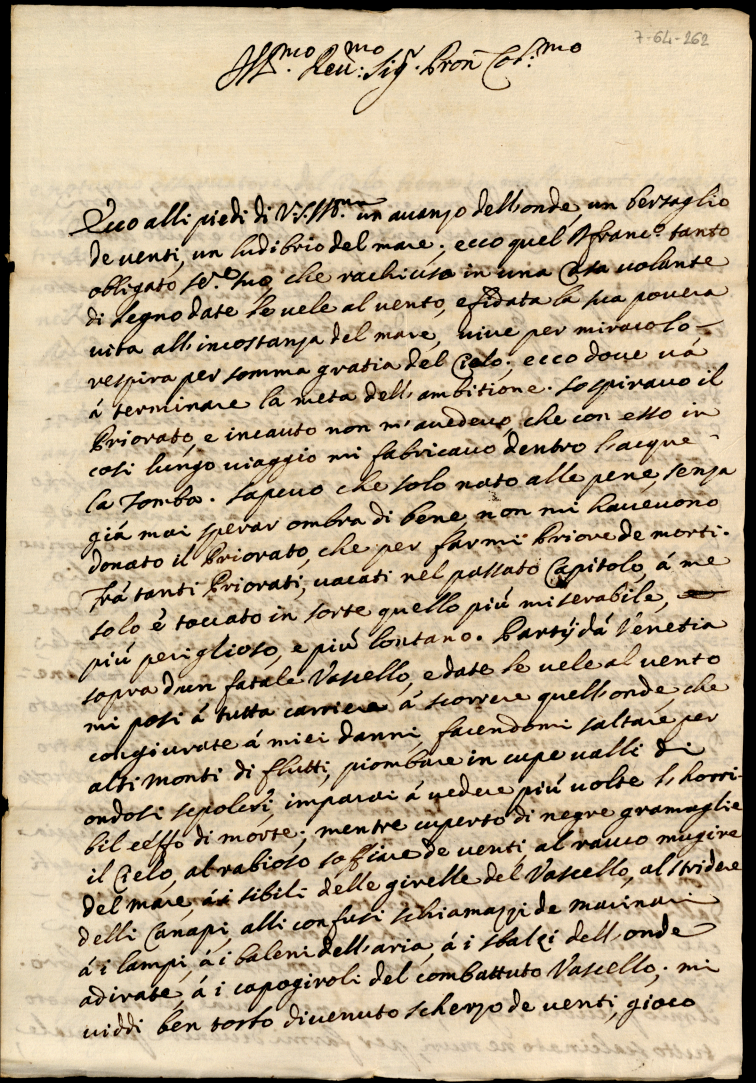 7-64-262
Ill.mo Rev:mo Sig.r Pron Col:mo
Ecco alli piedi di V.S. Ill.ma un avanzo dell'onde, un bersaglio
de venti, un ludibrio del mare; ecco quel P. franc.o tanto
obligato se.re suo, che rachiuso in una Casa volante
di legno date le vele al vento, e fidata la sua povera
vita all'incostanza del mare, vive per miracolo
respira per somma gratia del Cielo; ecco dove và
à terminare la meta dell'ambitione. Sospiravo il
Priorato, e incauto non m'avedevo, che con esso in
cosi lungo viaggio mi fabricavo dentro l'acque
la Tomba. Sapevo che solo nato alle pene, senza
già mai sperar ombra di bene, non mi havevono
donato il Priorato, che per farmi Priore de morti.
Frà tanti Priorati, vacati nel passato Capitolo, à me
solo è toccato in sorte quello più miserabile,
più periglioso, e più lontano. Partÿ dà Venetia
sopra d'un fatale Vascello, e date le vele al vento
mi posi à tutta carriera à scorrere quell'onde che
congiurate à miei danni, facendomi saltare per
alti monti di flutti, piombare in cupe valli di
ondosi sepolcri, imparai à vedere più volte l'horri-
bil ceffo di morte; mentre cuperto di negre gramaglie
il Cielo, al rabioso soffiare de venti, al rauco mugire
del mare, ài sibili delle girelle del Vascello, al stridere
delli Canapi, alli confusi schiamazzi de marinari
à i lampi, à i baleni dell'aria, à i sbalzi dell'onde
adirate, à i capogiroli del combattuto Vascello; mi
viddi ben tosto divenuto scherzo de venti, gioco